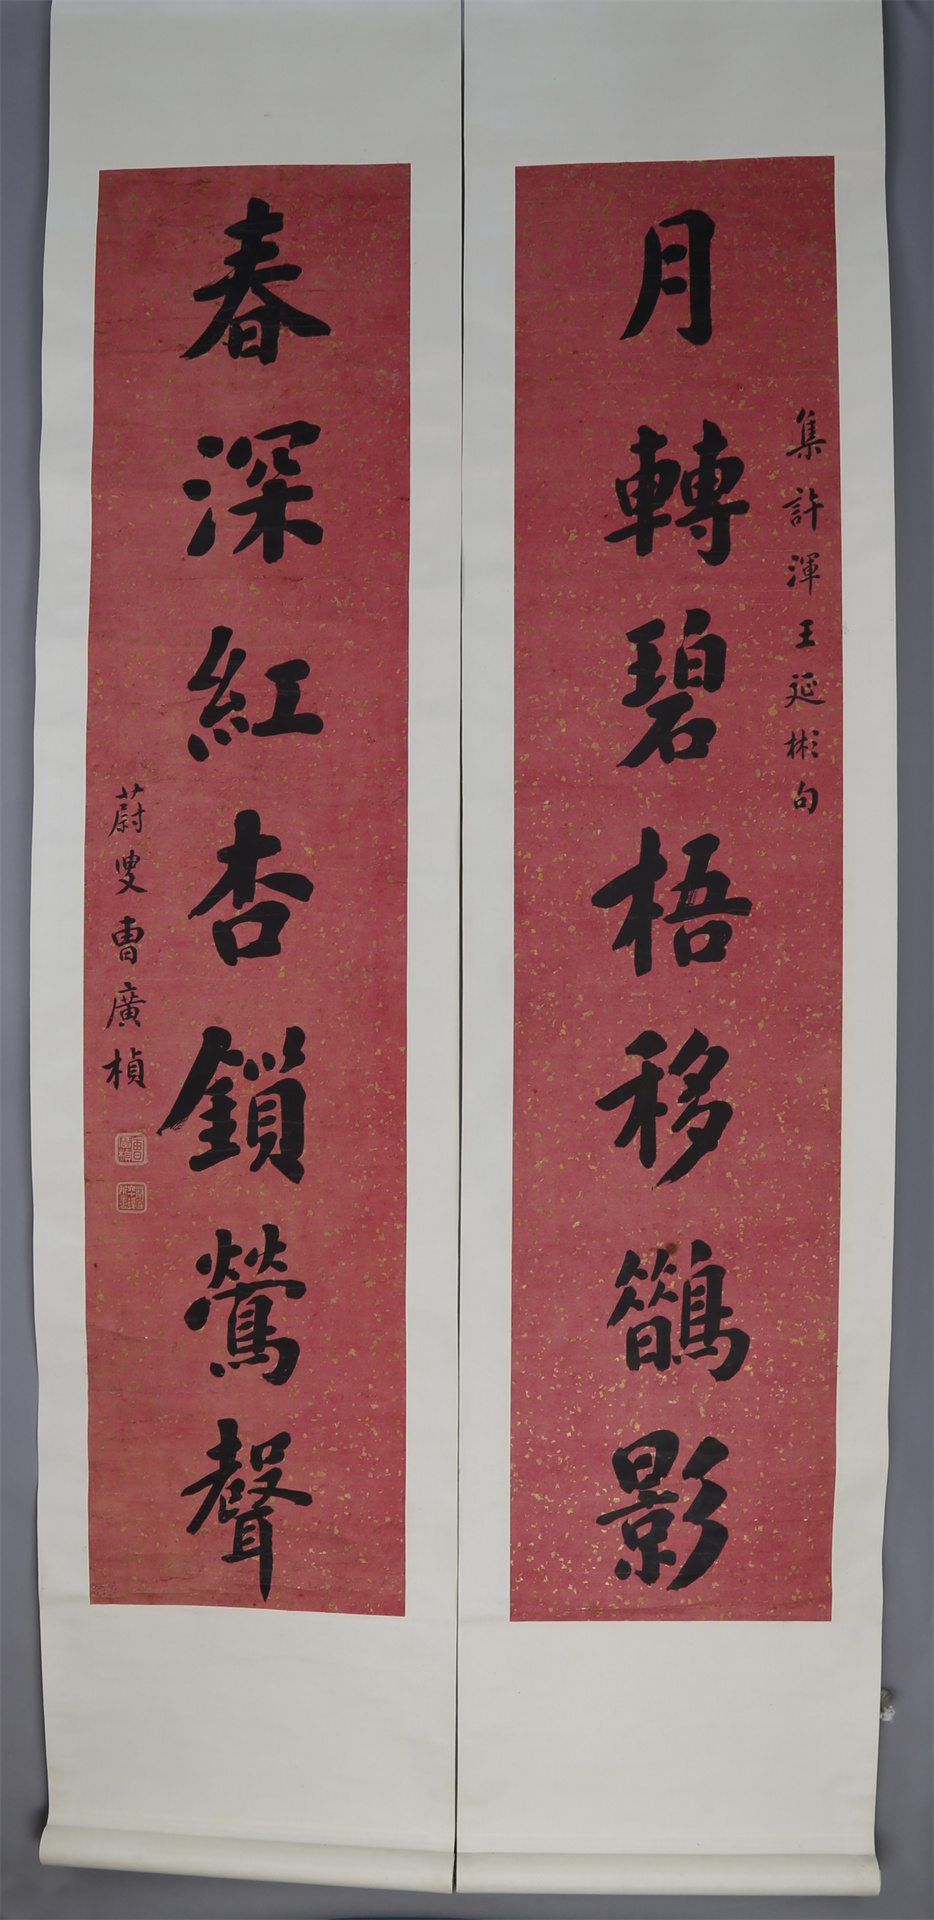 集許渾王延彬句
月轉碧梧移鵲影
春深紅杏鎖鶯聲
蔚叟曹廣楨